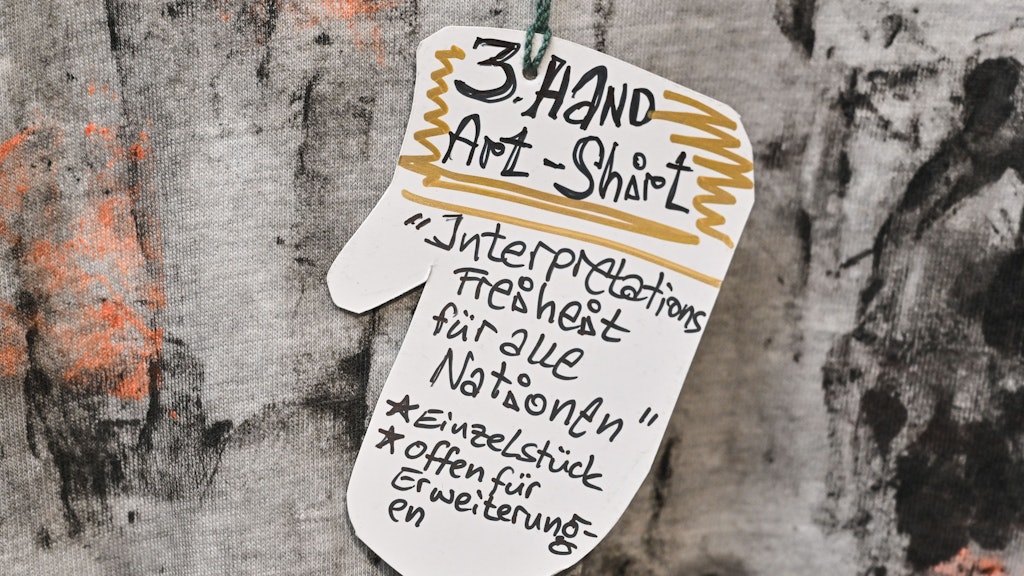 3. HAND
Art-Shirt
"Interpretations
Freiheit
für alle
Nationen"
★ Einzelstück
★ offen für
Erweiterung-
en